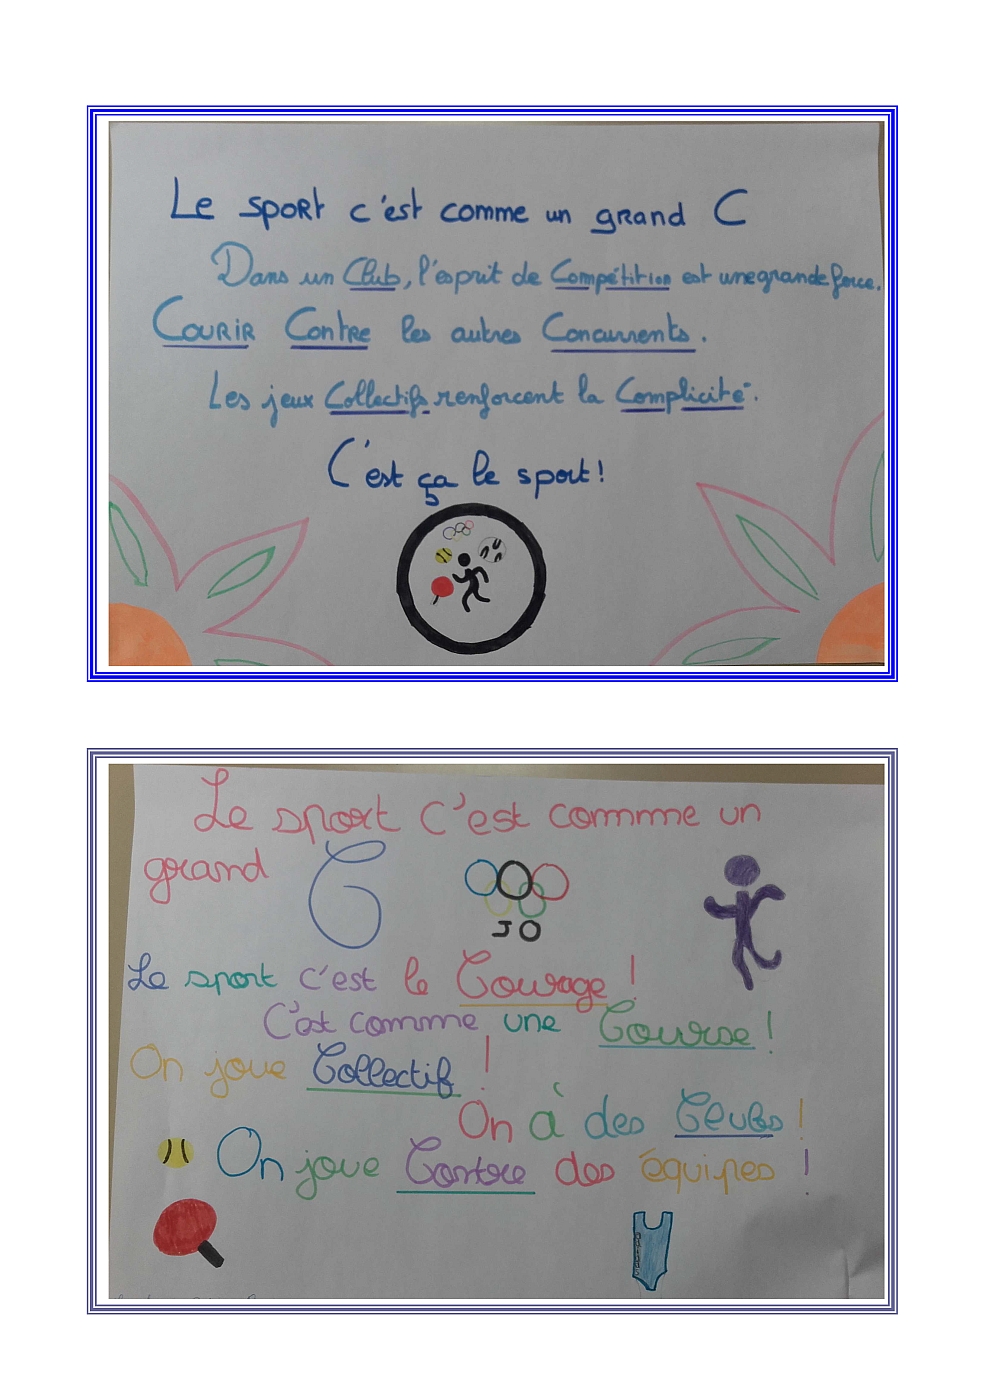 Le sport c'est comme un grand C
Dans un Club, l'esprit de Compétition est une grande force.
Courir Contre les autres Concurrents.
Les jeux Collectifs renforcent la Complicité.
C'est ça le sport!
Le sport c'est commme un
grand C
JO
Le sport c'est le Courage!
C'est commme une Course!
On joue Collectif!
On à des Clubs!
On joue Contre des équipes!